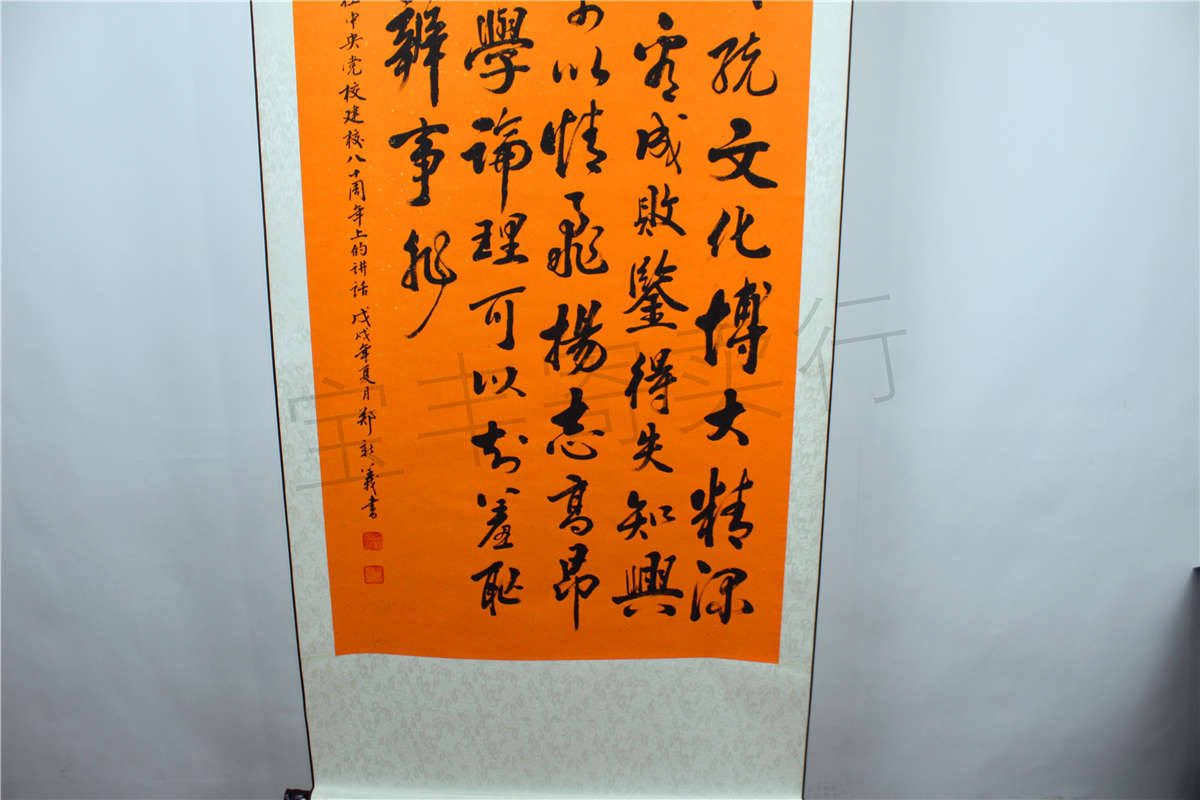 統文化博大精深
看成敗鑒得失知興
可以情飛揚志高昂
學論理可以知羞耻
辨事非
在中央党校建校八十周年上的讲话 戊戌年夏月郑新義書
宝丰寄卖行